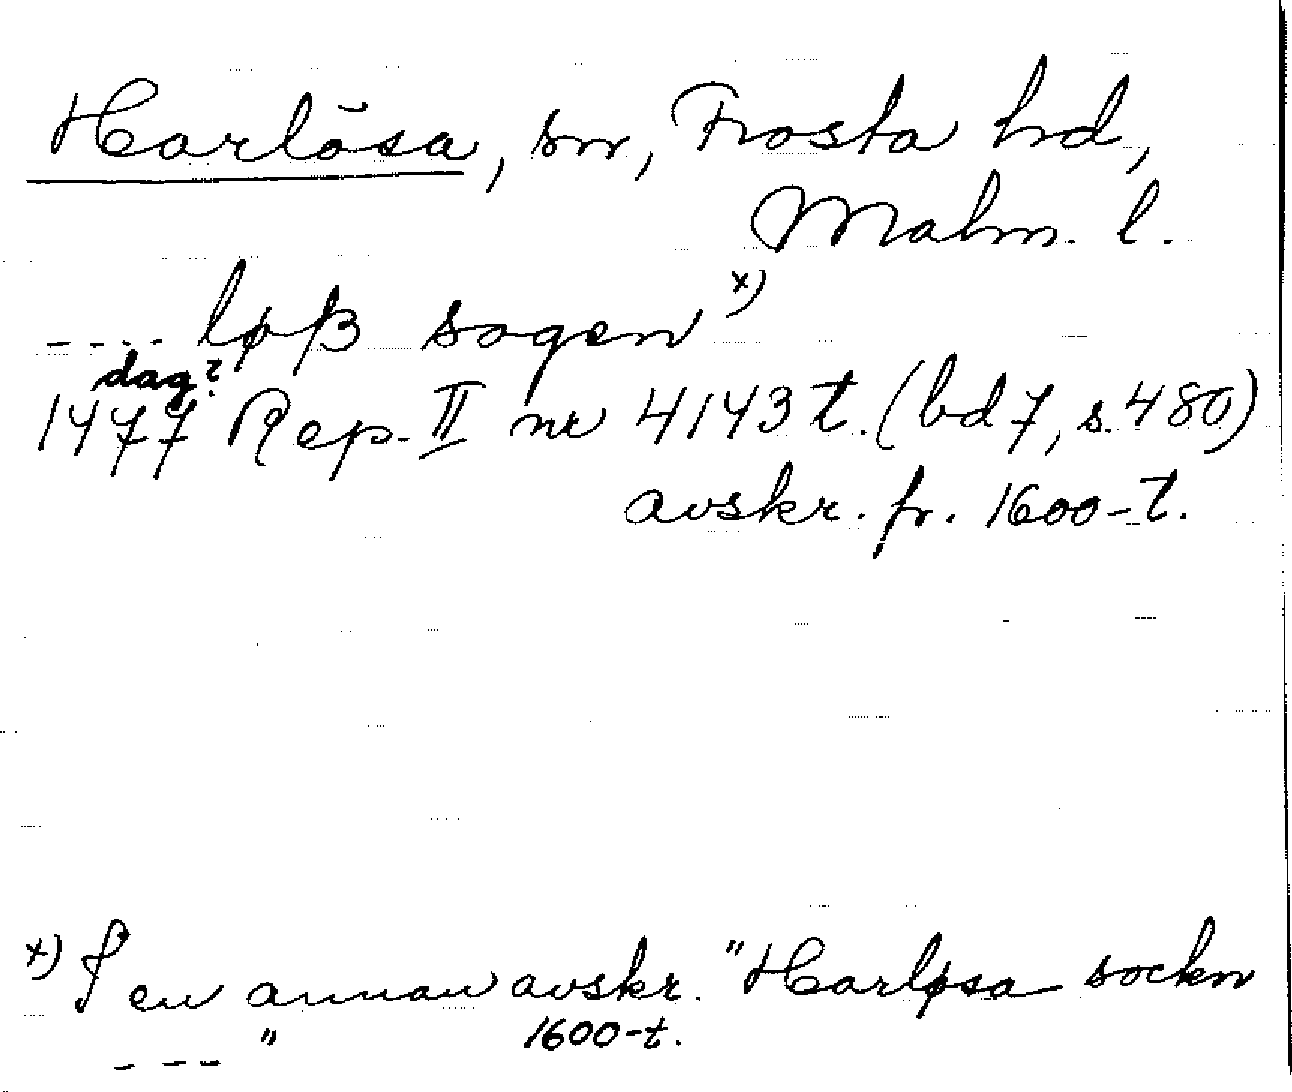 Harlösa, sn, Frosta hd,
Malm. l.
---- løß sogen x)
dag?
1477 Rep. II nr 4143 t. (bd 7, s. 480)
avskr. fr. 1600-t.
x) I en annan avskr. "Harløsa sockn
--- " 1600-t.